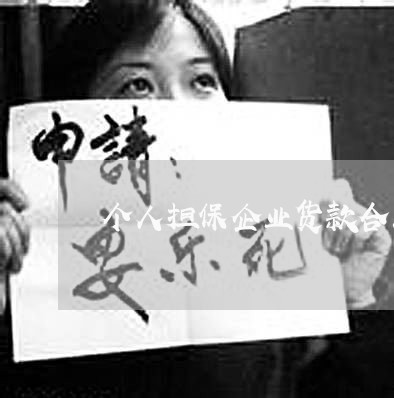 申請：
个人担保企业货款合
安乐死